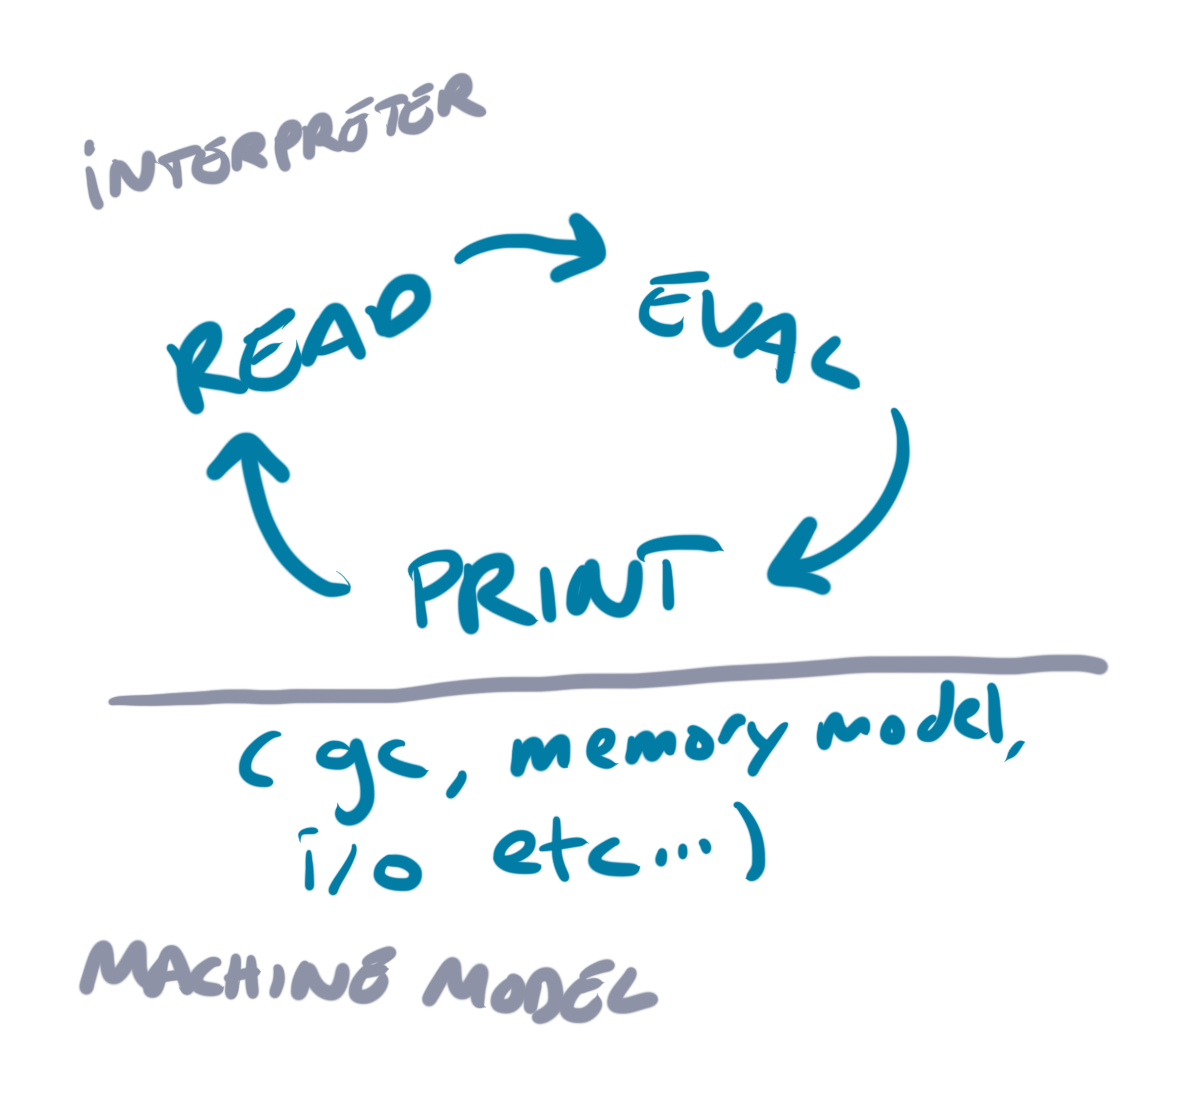 INTERPRETER
READ
EVAL
PRINT
( gc, memory model,
i/o etc...)
MACHINE MODEL